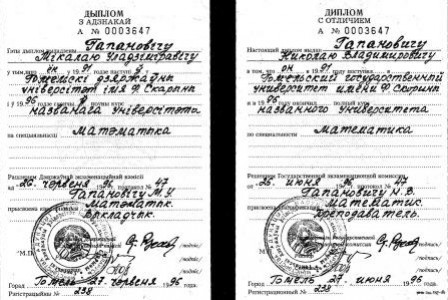 ДЫПЛОМ
З АДЗНАКАЙ
А № 0003647
Гэты дыплом выдадзены Гапановічу
Мікалаю Уладзіміравічу
у тым, што ён у 19 91 годзе паступіў у
Гомельскі дзяржаўны
універсітэт імя Ф. Скарыны
і ў 19 96 годзе поўны курс
названага універсітэта
па спецыяльнасці
Математыка
Рашэннем Дзяржаўнай экзаменацыйнай камісіі
ад 26 червеня 19 96 г. пратакол № 47
Гапановічу М.У.
прысвоена кваліфікацыя Математык.
Выкладчык.
М.П.
/подпіс/
/подпіс/
/подпіс/
Горад Гомель 27 червеня 19 96
Рэгістрацыйны № 238
ДИПЛОМ
С ОТЛИЧИЕМ
А № 0003647
Настоящий диплом выдан Гапановичу
Николаю Владимировичу
в том, что он в 19 91 году поступил в
Гомельский государственный
университет имени Ф. Скорины
и в 19 96 году окончил полный курс
названного университета
по специальности
Математика
Решением Государственной экзаменационной комиссии
от 26 июня 19 96 г. протокол № 47
Гапановичу Н.В.
присвоена квалификация Математик.
Преподаватель.
М.П.
/подпись/
/подпись/
/подпись/
Город Гомель 27 июня 19 96
Регистрационный № 238